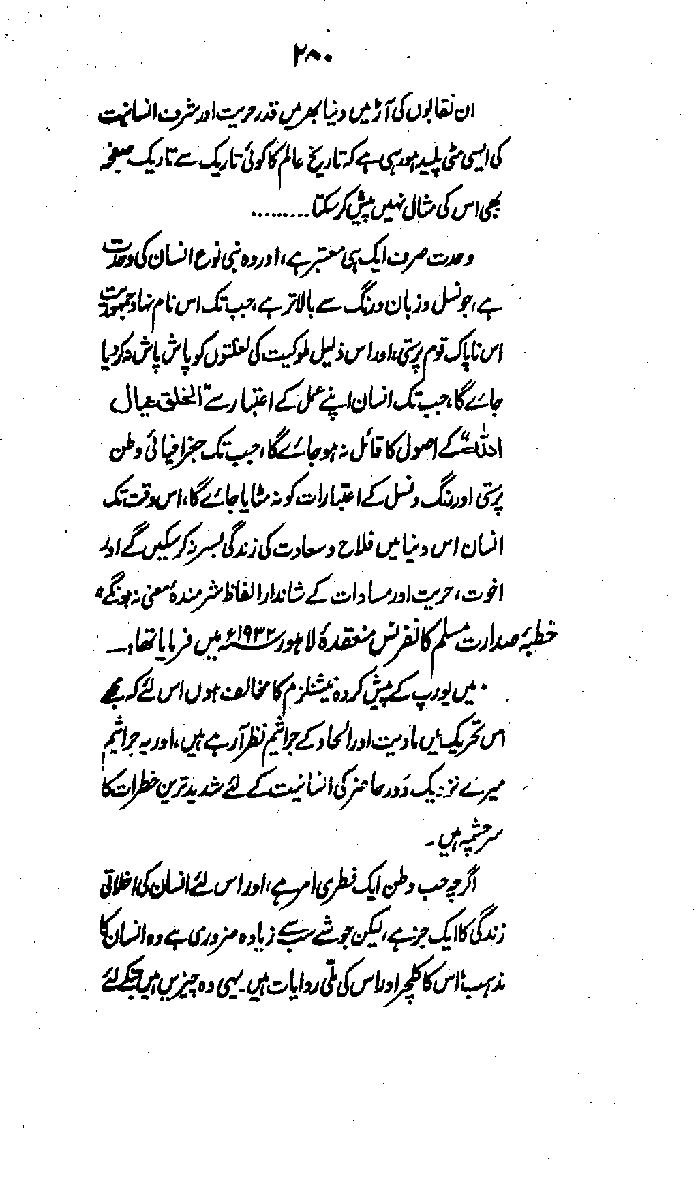 ۲۸۰
ان نقابوں کی آڑ میں دنیا بھر میں قدر حریت اور شرف انسانیت
کی ایسی مٹی پلید ہو رہی ہے کہ تاریخ عالم کا کوئی تاریک سے تاریک صفحہ
بھی اس کی مثال نہیں پیش کر سکتا .........
وحدت صرف ایک ہی معتبر ہے، اور وہ بنی نوع انسان کی وحدت
ہے، جو نسل و زبان و رنگ سے بالاتر ہے، جب تک اس نام نہاد جمہوریت
اس ناپاک قوم پرستی، اور اس ذلیل ملوکیت کی لعنتوں کو پاش پاش نہ کر دیا
جائے گا، جب تک انسان اپنے عمل کے اعتبار سے "الخلق عیال
اللہ" کے اصول کا قائل نہ ہو جائے گا، جب تک جغرافیائی وطن
پرستی اور رنگ و نسل کے اعتبارات کو نہ مٹایا جائے گا، اس وقت تک
انسان اس دنیا میں فلاح و سعادت کی زندگی بسر نہ کر سکیں گے اور
اخوت، حریت اور مساوات کے شاندار الفاظ شرمندۂ معنی نہ ہونگے"
خطبۂ صدارت مسلم کانفرنس منعقدۂ لاہور ۱۹۳۲ء میں فرمایا تھا:۔
"میں یورپ کے پیش کردہ نیشنلزم کا مخالف ہوں اس لئے کہ مجھے
اس تحریک میں مادیت اور الحاد کے جراثیم نظر آرہے ہیں، اور یہ جراثیم
میرے نزدیک دَور حاضر کی انسانیت کے لئے شدید ترین خطرات کا
سرچشمہ ہیں۔
اگرچہ حب وطن ایک فطری امر ہے، اور اس لئے انسان کی اخلاقی
زندگی کا ایک جز ہے، لیکن جو شے سب سے زیادہ ضروری ہے وہ انسان کا
مذہب، اس کا کلچر اور اس کی ملّی روایات ہیں۔ یہی وہ چیزیں ہیں جنکے لئے